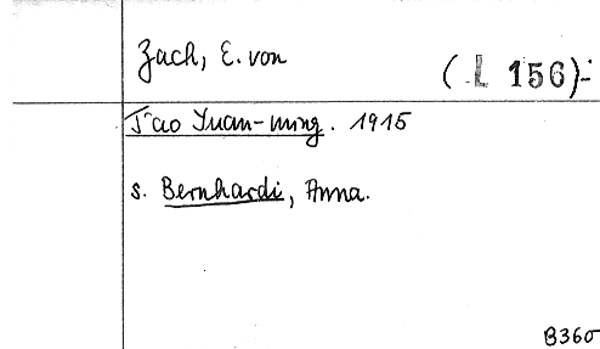 Zach, E. von
(L 156)-
T'ao Yuan-ming. 1915
s. Bernhardi, Anna.
B360